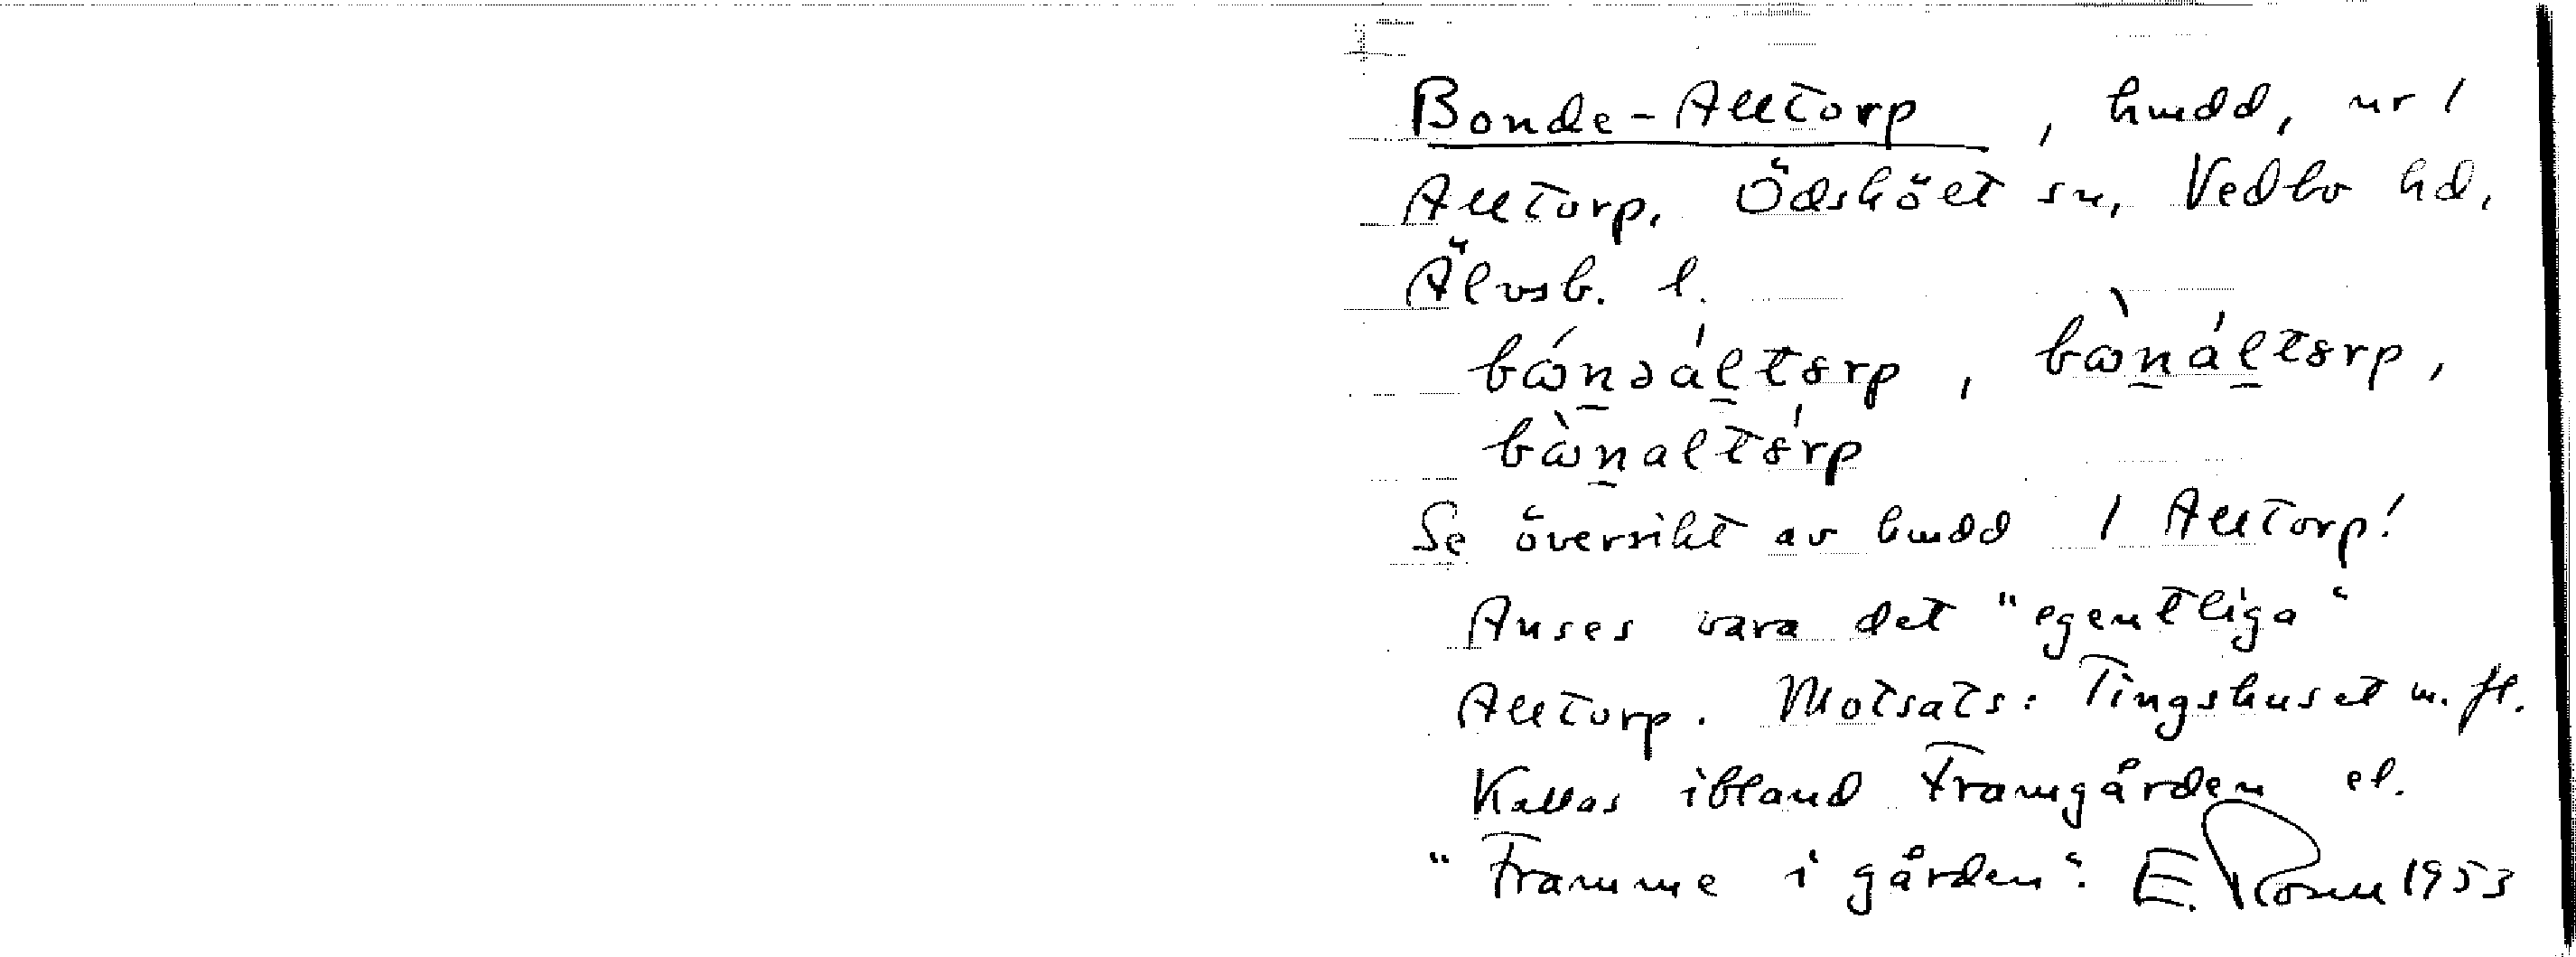 Bonde-Alltorp, hmdd, nr 1
Alltorp, Ödskölt sn, Vedbo hd,
Älvsb. l.
Se översikt av hmdd 1 Alltorp!
Anses vara det "egentliga"
Alltorp. Motsats: Tingshuset m. fl.
Kallas ibland Framgården el.
"Framme i gården". E. 1953